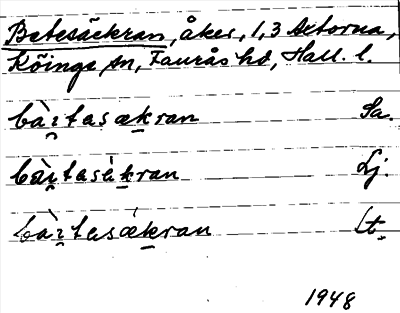 Betesäckran, åker, 1,3 Axtorna,
Köinge sn, Faurås hd, Hall. l.
bàɪ̯tasækran Sa.
bàɪ̯tasækran Lj.
bàɪ̯tasækran Lt.
1948